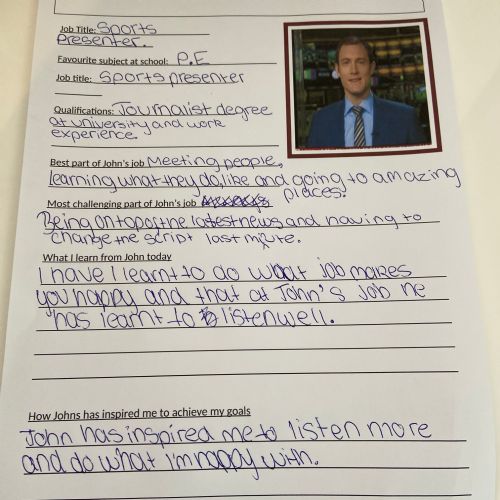 Job Title: Sports
Presenter.
Favourite subject at school: P.E
Job title: Sports presenter
Qualifications: Journalist degree
at university and work
experience.
Best part of John's job Meeting people,
learning what they do, like and going to amazing
places.
Most challenging part of John's job
Being on top of the latest news and having to
change the script last minute.
What I learn from John today
I have I learnt to do what job makes
you happy and that at John's job he
has learnt to listen well.
How Johns has inspired me to achieve my goals
John has inspired me to listen more
and do what I'm happy with.